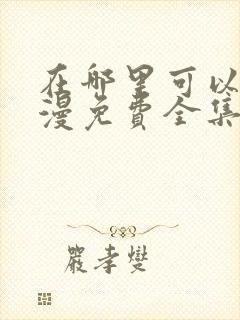 在哪里可以
漫免费全集
严孝燮